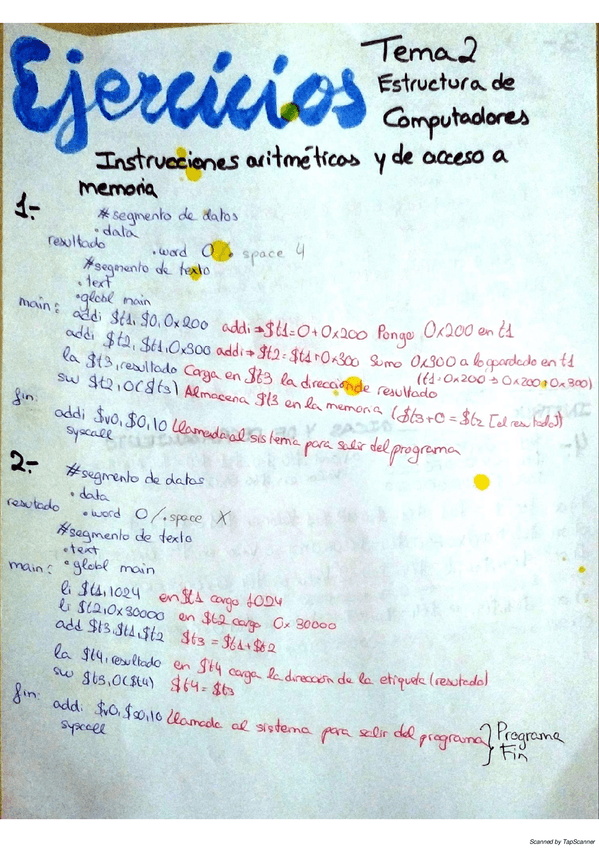 Ejercicios Tema 2
Estructura de
Computadores
Instrucciones aritméticas y de acceso a
memoria
1.-
#segmento de datos
.data
resultado .word 0 /. space 4
#segmento de texto
.text
.globl main
main: addi $t1, $0, 0x200 addi → $t1 = 0 + 0x200 Pongo 0x200 en t1
addi $t2, $t1, 0x300 addi → $t2 = $t1 + 0x300 Sumo 0x300 a lo guardado en t1
la $t3, resultado Carga en $t3 la dirección de resultado (t1 = 0x200 → 0x200 + 0x300)
sw $t2, 0($t3) Almacena $t3 en la memoria ($t3 + 0 = $t2 [el resultado])
fin: addi $v0, $0, 10 Llamada al sistema para salir del programa
syscall
2.-
#segmento de datos
.data
resultado .word 0 /. space X
#segmento de texto
.text
main: .globl main
li $t1, 1024 en $t1 cargo 1024
li $t2, 0x30000 en $t2 cargo 0x30000
add $t3, $t1, $t2 $t3 = $t1 + $t2
la $t4, resultado en $t4 carga la dirección de la etiqueta (resultado)
sw $t3, 0($t4) $t4 = $t3
fin: addi $v0, $0, 10 Llamada al sistema para salir del programa } Programa
syscall Fin
Scanned by TapScanner